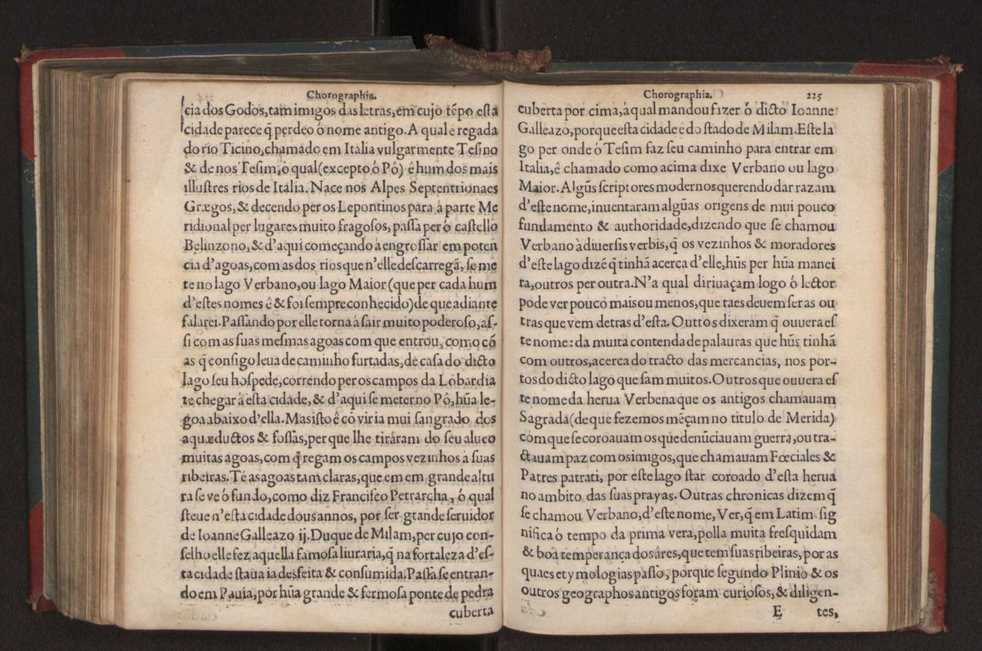 Chorographia.
cia dos Godos, tam imigos das letras, em cujo tẽpo esta
cidade parece q̃ perdeo ó nome antigo. A qual e regada
do rio Ticino, chamado em Italia vulgarmente Tesino
& de nos Tesim, ó qual (excepto ó Pô) ê hum dos mais
illustres rios de Italia. Nace nos Alpes Septentrionaes
Grægos, & decendo per os Lepontinos para á parte Me
ridional per lugares muito fragosos, passa per ó castello
Belinzono, & d'aqui começando à engrossar em poten
cia d'agoas, com as dos rios que n'elle descarregã, se me
te no lago Verbano, ou lago Maior (que per cada hum
d'estes nomes ê & foi sempre conhecido) de que adiante
falarei. Passando por elle torna à sair muito poderoso, as-
si com as suas mesmas agoas com que entrou, como cõ
as q̃ consigo leua de caminho furtadas, de casa do dicto
lago seu hospede, correndo per os campos da Lõbardia
te chegar à esta cidade, & d'aqui se meter no Pô, hũa le-
goa abaixo d'ella. Mas isto ê cõ viria mui sangrado dos
aquæductos & fossas, per que lhe tirâram do seu alueo
muitas agoas, com q̃ regam os campos vezinhos à suas
ribeiras. Té as agoas tam claras, que em em grande altu
ra se ve ó fundo, como diz Francisco Petrarcha, ó qual
steue n'esta cidade dous annos, por ser grande seruidor
de Ioanne Galleazo ij. Duque de Milam, per cujo con-
selho elle fez aquella famosa liuraria, q̃ na fortaleza d'es-
ta cidade staua ia desfeita & consumida. Passa se entran-
do em Pauia, por hũa grande & fermosa ponte de pedra
cuberta
Chorographia. 225
cuberta por cima, à qual mandou fazer ó dicto Ioanne
Galleazo, porque esta cidade e do stado de Milam. Este la
go per onde ó Tesim faz seu caminho para entrar em
Italia, ê chamado como acima dixe Verbano ou lago
Maior. Algũs scriptores modernos querendo dar razam
d'este nome, inuentaram algũas origens de mui pouco
fundamento & authoridade, dizendo que se chamou
Verbano à diuersis verbis, q̃ os vezinhos & moradores
d'este lago dizẽ q̃ tinhã acerca d'elle, hũs per hũa manei
ra, outros per outra. N'a qual diriuaçam logo ó lector
pode ver pouco mais ou menos, que taes deuem ser as ou
tras que vem detras d'esta. Outros dixeram q̃ ouuera es
te nome: da muita contenda de palauras que hũs tinhã
com outros, acerca do tracto das mercancias, nos por-
tos do dicto lago que sam muitos. Outros que ouuera es
te nome da herua Verbena que os antigos chamauam
Sagrada (de que fezemos mẽçam no titulo de Merida)
com que se coroauam os que denũciauam guerra, ou tra-
ctauam paz com os imigos, que chamauam Fœciales &
Patres patrati, por este lago star coroado d'esta herua
no ambito das suas prayas. Outras chronicas dizem q̃
se chamou Verbano, d'este nome, Ver, q̃ em Latim sig
nifica ó tempo da prima vera, polla muita fresquidam
& boa temperança dos áres, que tem suas ribeiras, por as
quaes etymologias passo, porque segundo Plinio & os
outros geographos antigos foram curiosos, & diligen-
E tes,